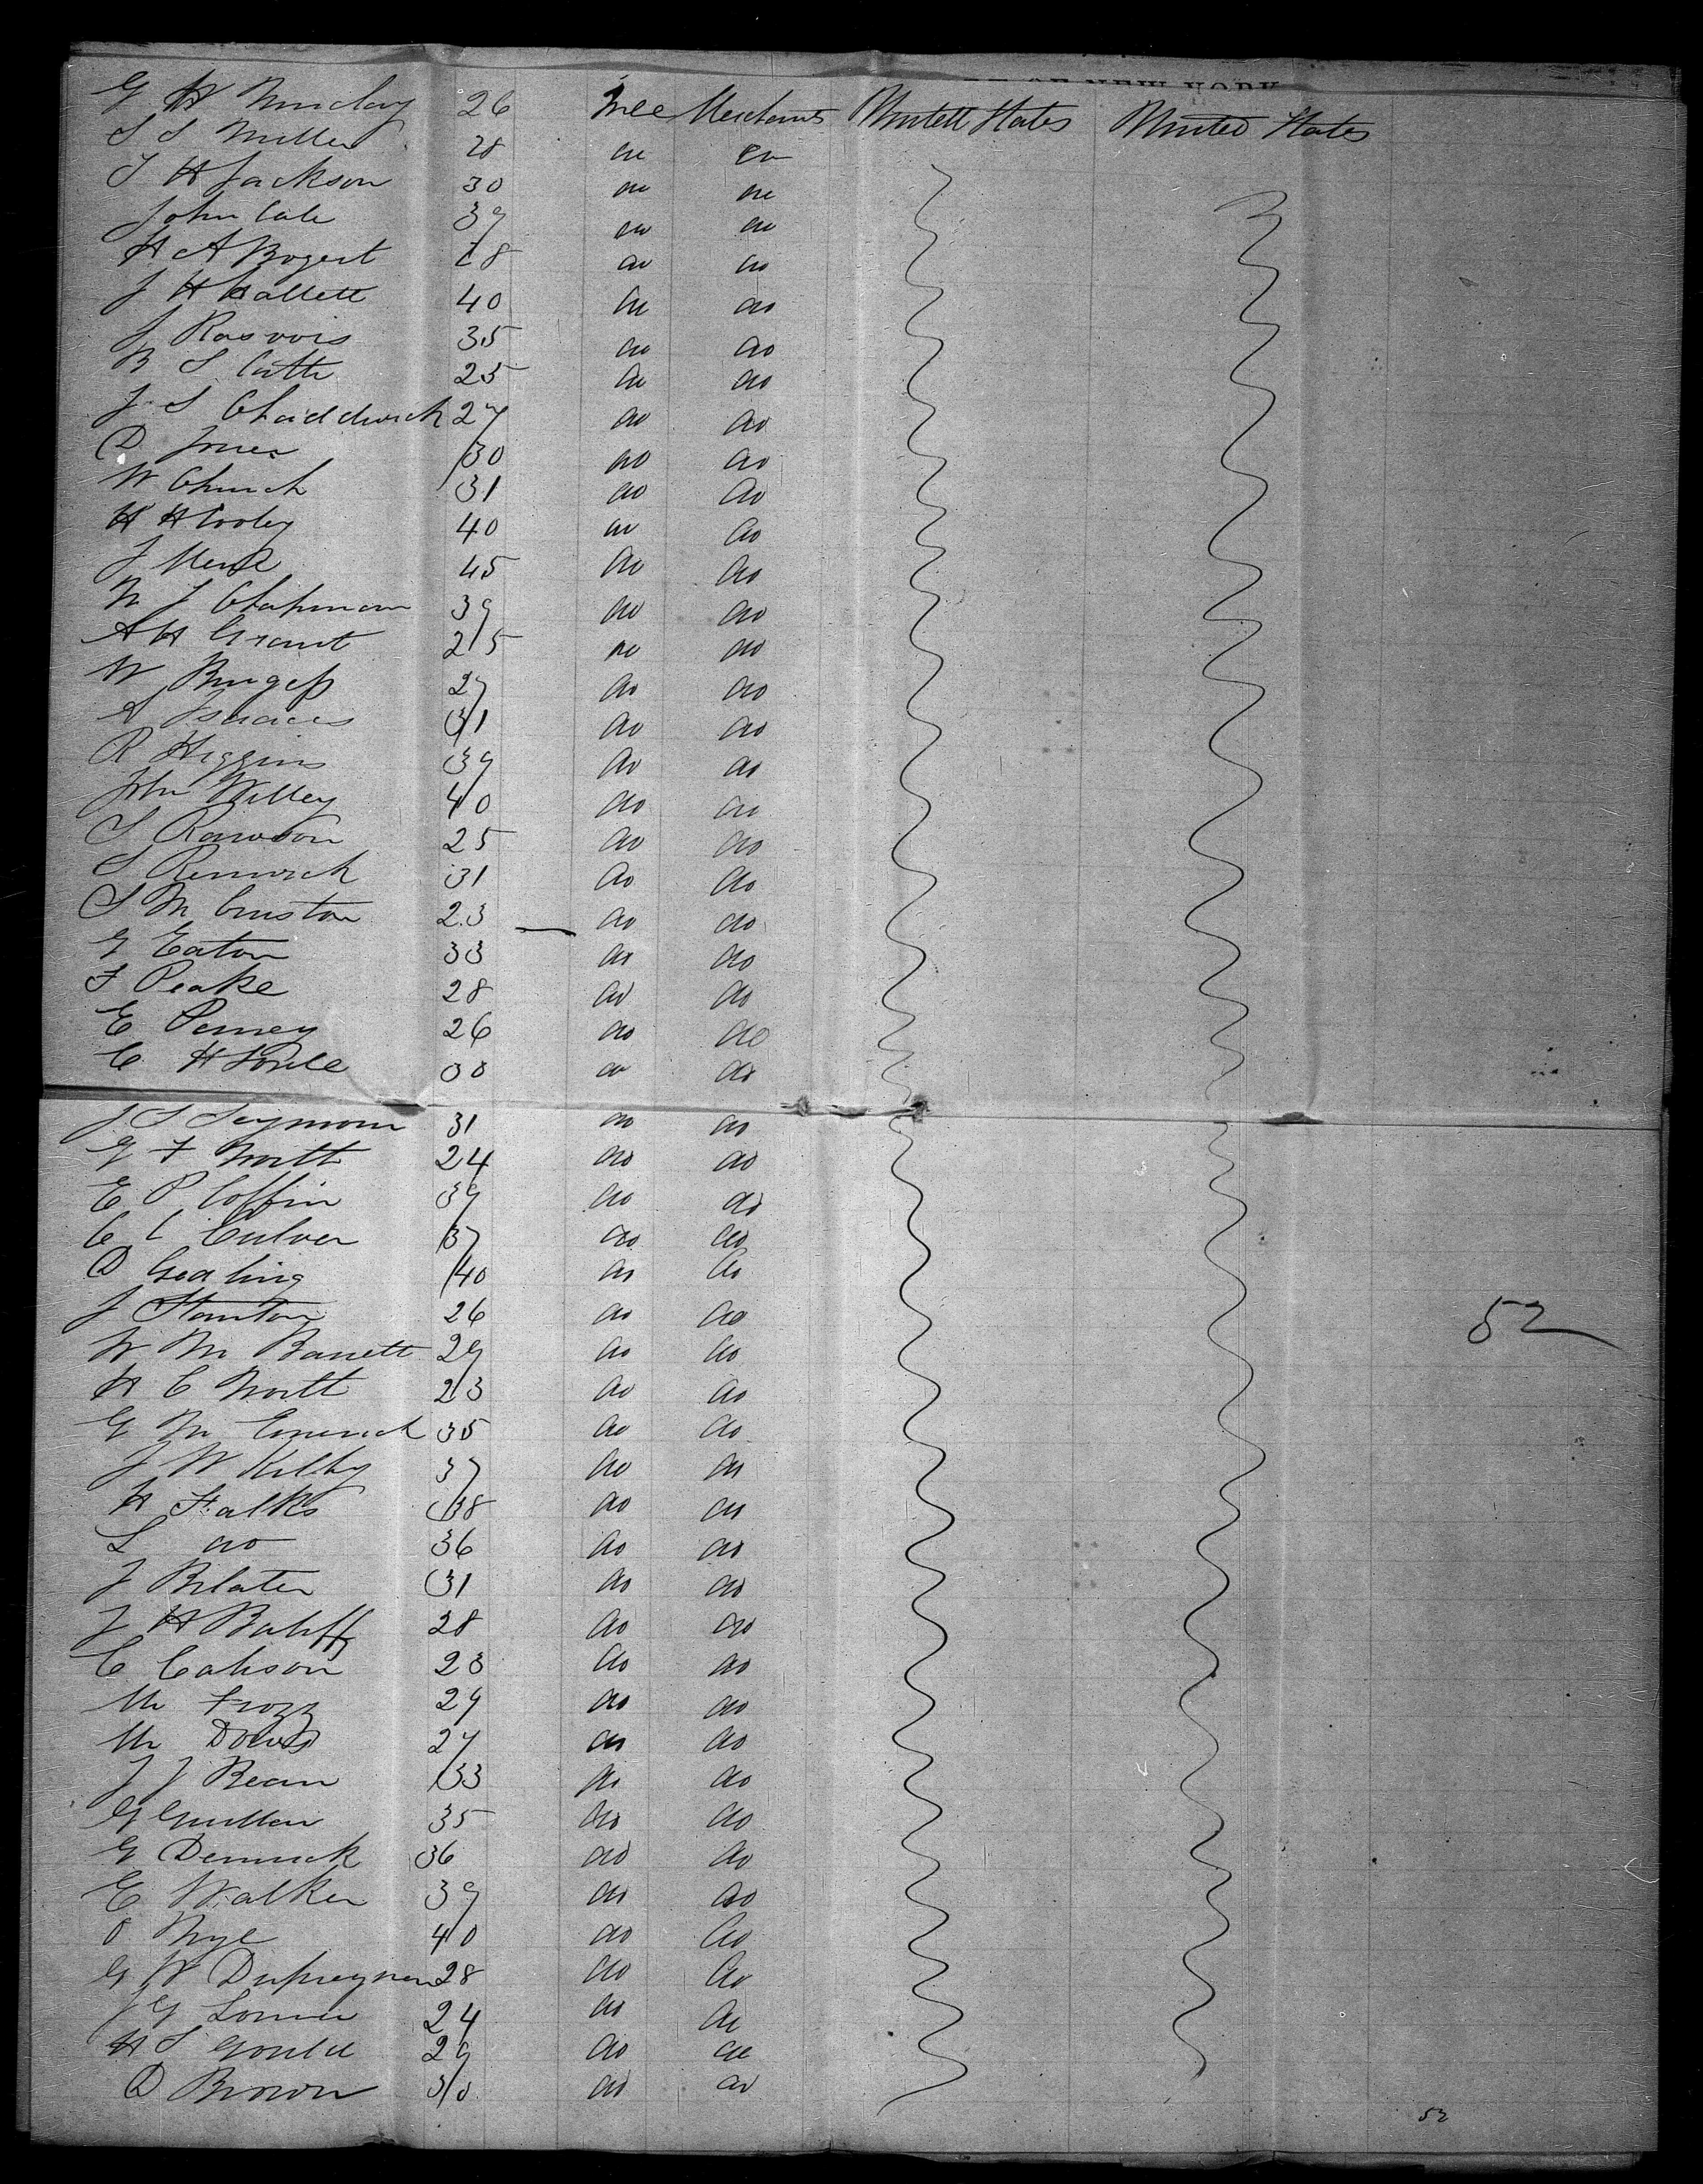 OF NEW YORK
G W 26 Male Merchants United States United States
S S Miller 28 do do
T H Jackson 30 do do
John Cale 39 do do
H A Bogert 28 do do
J H Hallett 40 do do
J 35 do do
B S 25 do do
J S Chaddwick 27 do do
D Jones 30 do do
W Church 31 do do
H H Cooley 40 do do
J 45 do do
N J Chapman 39 do do
A H Grant 25 do do
W Burgess 27 do do
A Isaacs 31 do do
R Higgins 39 do do
John Willey 40 do do
S Rawson 25 do do
S Renwick 31 do do
S M 23 do do
G Eaton 33 do do
F Peake 28 do do
E 26 do do
C H 30 do do
J S Seymour 31 do do
G F North 24 do do
E P Coffin 39 do do
C C Culver 37 do do
D 40 do do
J Stanton 26 do do
W M Barrett 29 do do
H C North 23 do do
G M 35 do do
J W Kilby 37 do do
H Falks 38 do do
L do 36 do do
J 31 do do
J H 28 do do
C 23 do do
M 29 do do
M 27 do do
J J Bean 33 do do
G 35 do do
G 36 do do
E Walker 39 do do
O Nye 40 do do
G W 28 do do
J G 24 do do
H S Gould 29 do do
D Brown 30 do do
52
52